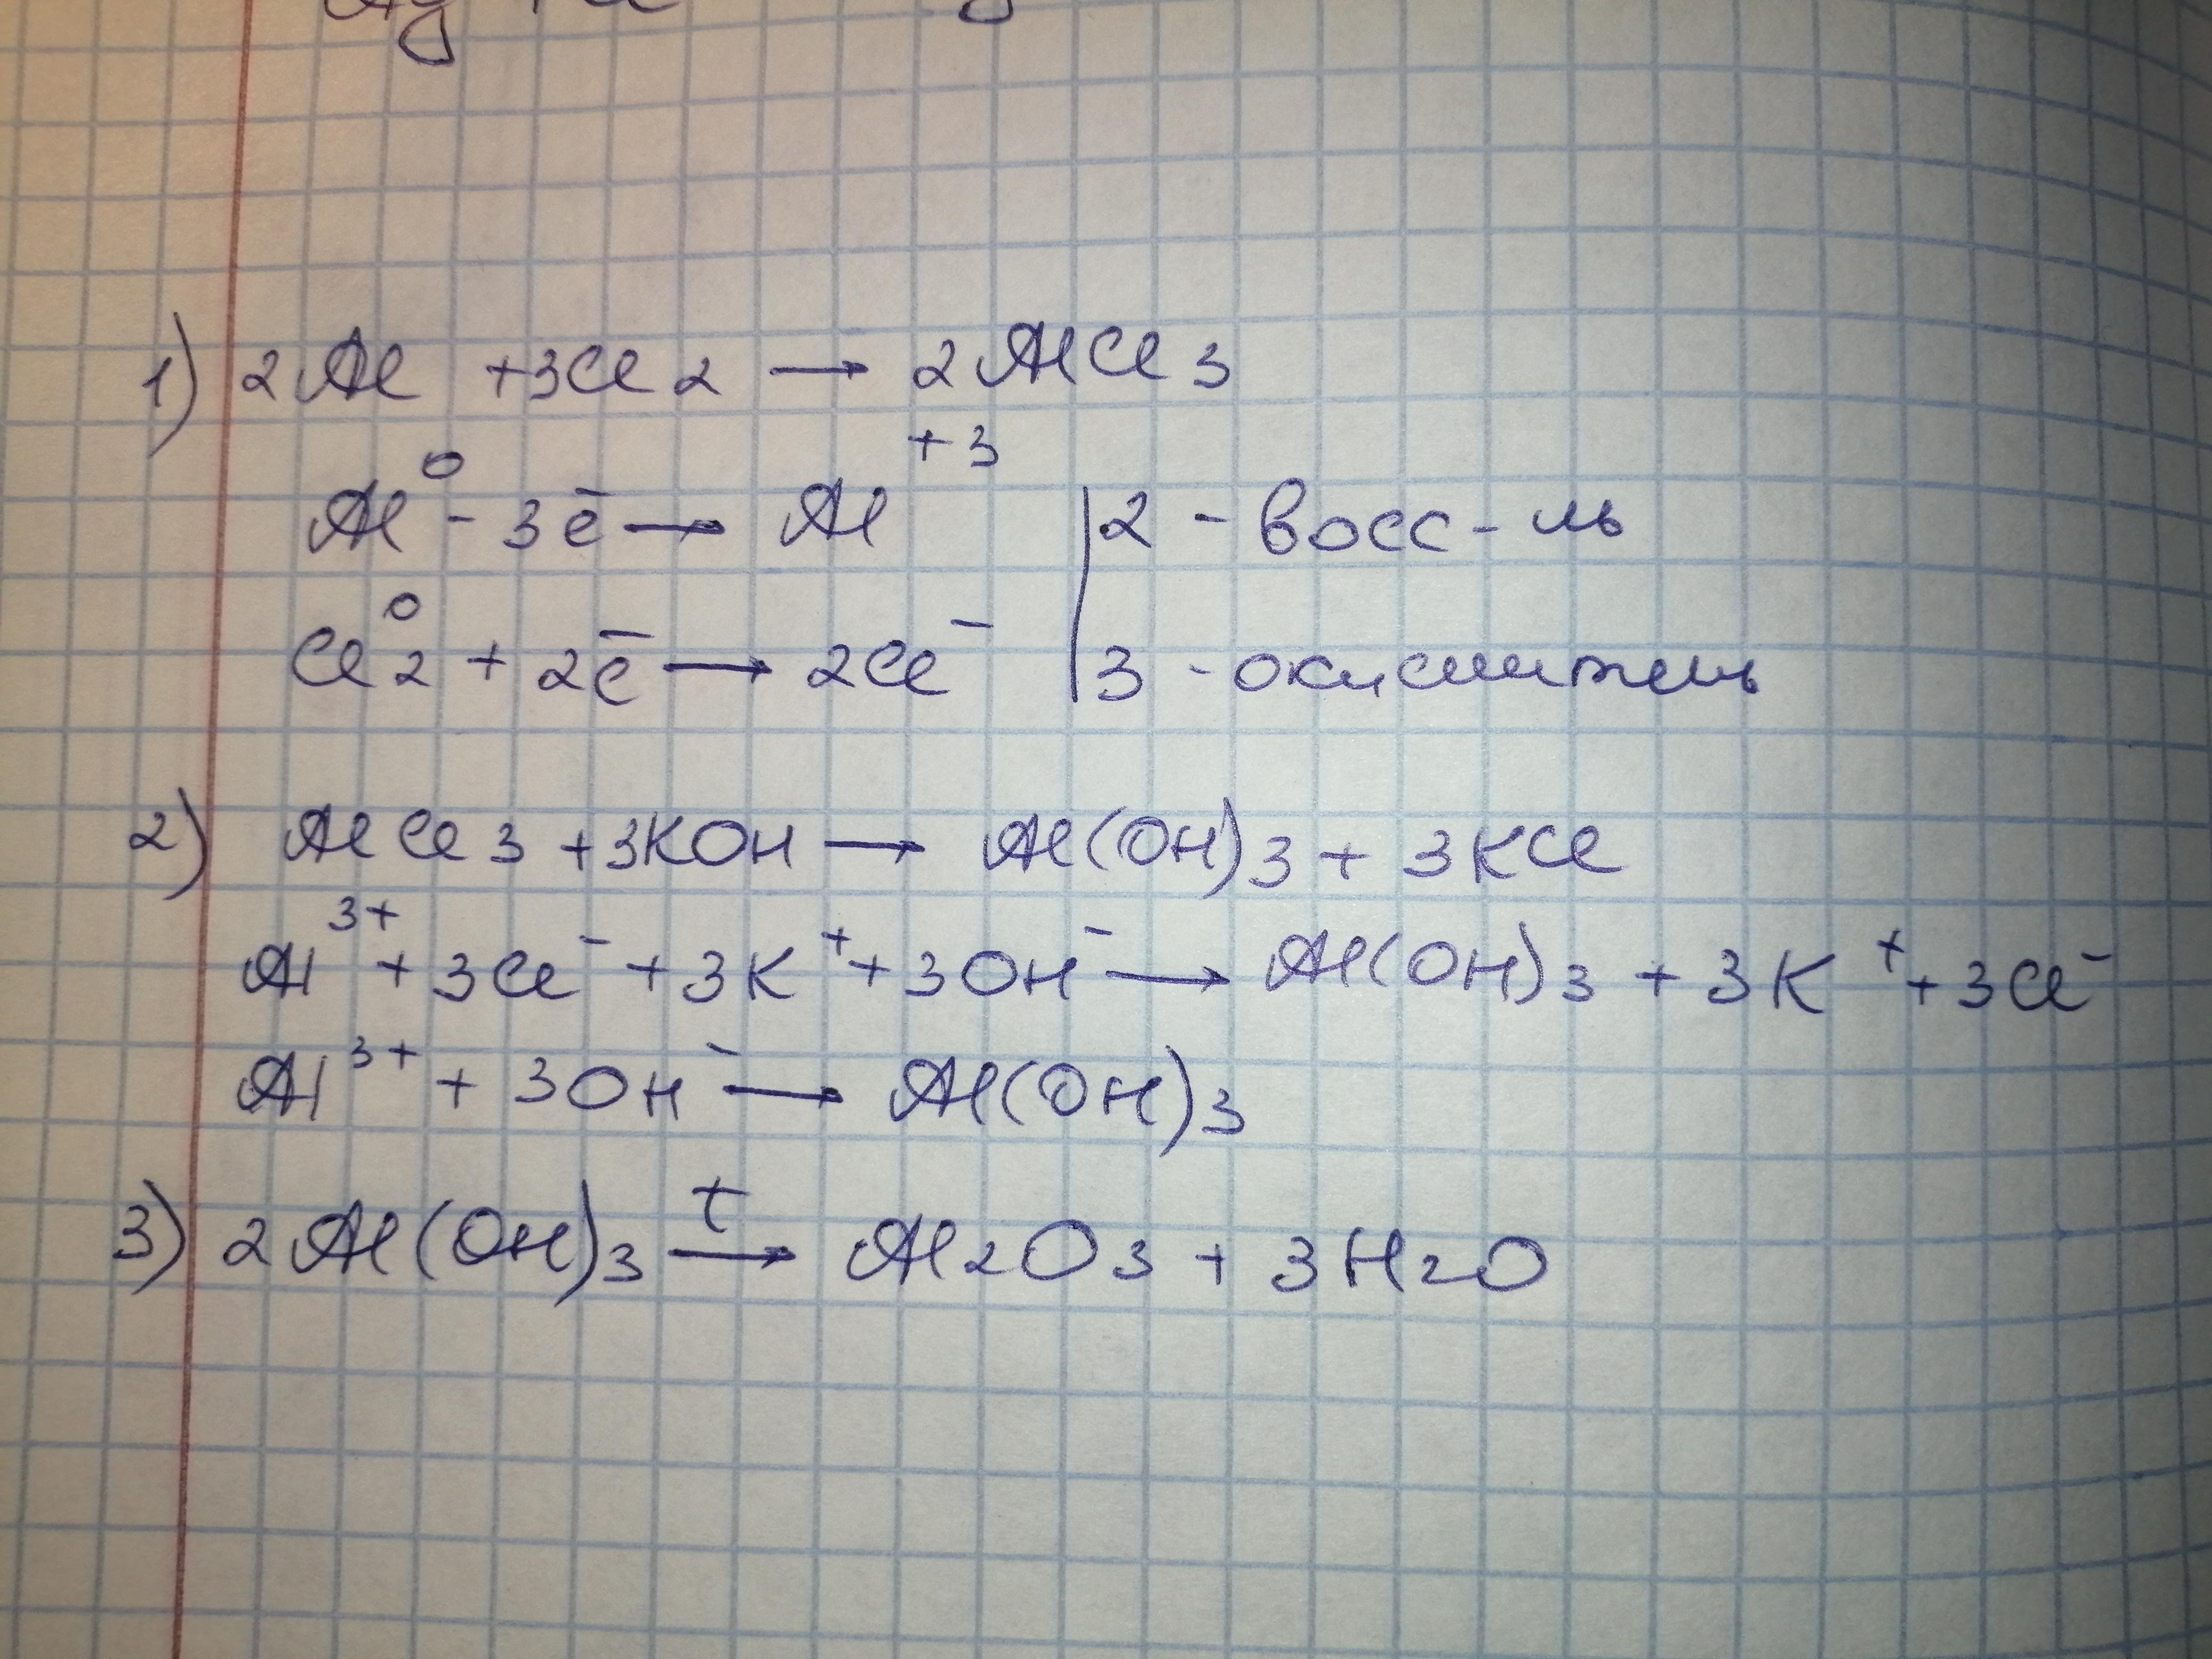 1) 2Al + 3Cl2 → 2AlCl3
Al⁰ - 3ē → Al⁺³ | 2 - восс-ль
Cl2⁰ + 2ē → 2Cl⁻ | 3 - окислитель
2) AlCl3 + 3KOH → Al(OH)3 + 3KCl
Al³⁺ + 3Cl⁻ + 3K⁺ + 3OH⁻ → Al(OH)3 + 3K⁺ + 3Cl⁻
Al³⁺ + 3OH⁻ → Al(OH)3
3) 2Al(OH)3 t→ Al2O3 + 3H2O